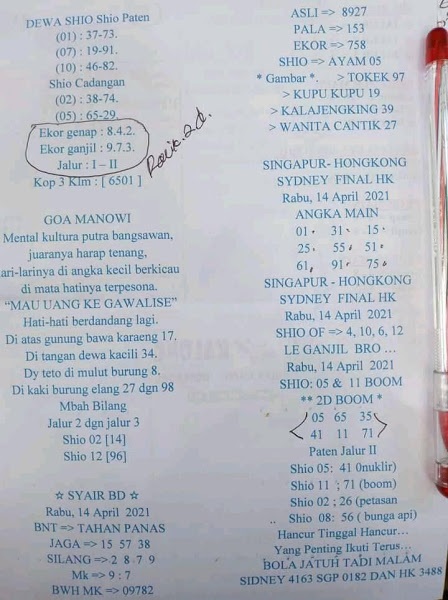 DEWA SHIO Shio Paten
(01) : 37-73.
(07) : 19-91.
(10) : 46-82.
Shio Cadangan
(02) : 38-74.
(05) : 65-29.
Ekor genap : 8.4.2.
Ekor ganjil : 9.7.3.
Jalur : I – II
Kop 3 Klm : [ 6501 ]
GOA MANOWI
Mental kultura putra bangsawan,
juaranya harap tenang,
ari-larinya di angka kecil berkicau
di mata hatinya terpesona.
“MAU UANG KE GAWALISE”
Hati-hati berdandang lagi.
Di atas gunung bawa karaeng 17.
Di tangan dewa kacili 34.
Dy teto di mulut burung 8.
Di kaki burung elang 27 dgn 98
Mbah Bilang
Jalur 2 dgn jalur 3
Shio 02 [14]
Shio 12 [96]
☆ SYAIR BD ☆
Rabu, 14 April 2021
BNT => TAHAN PANAS
JAGA => 15 57 38
SILANG => 2 8 7 9
Mk => 9 : 7
BWH MK => 09782
ASLI => 8927
PALA => 153
EKOR => 758
SHIO => AYAM 05
* Gambar *. > TOKEK 97
> KUPU KUPU 19
> KALAJENGKING 39
> WANITA CANTIK 27
SINGAPUR- HONGKONG
SYDNEY FINAL HK
Rabu, 14 April 2021
ANGKA MAIN
01. 31. 15.
25. 55. 51.
61, 91. 75.
SINGAPUR - HONGKONG
SYDNEY FINAL HK
Rabu, 14 April 2021
SHIO OF => 4, 10, 6, 12
LE GANJIL BRO …
Rabu, 14 April 2021
SHIO: 05 & 11 BOOM
** 2D BOOM *
05 65 35
41 11 71
Paten Jalur II
Shio 05: 41 0nuklir)
Shio 11 ; 71 (boom)
Shio 02 ; 26 (petasan
Shio 08: 56 ( bunga api)
Hancur Tinggal Hancur…
Yang Penting Ikuti Terus…
BOLA JATUH TADI MALAM
SIDNEY 4163 SGP 0182 DAN HK 3488